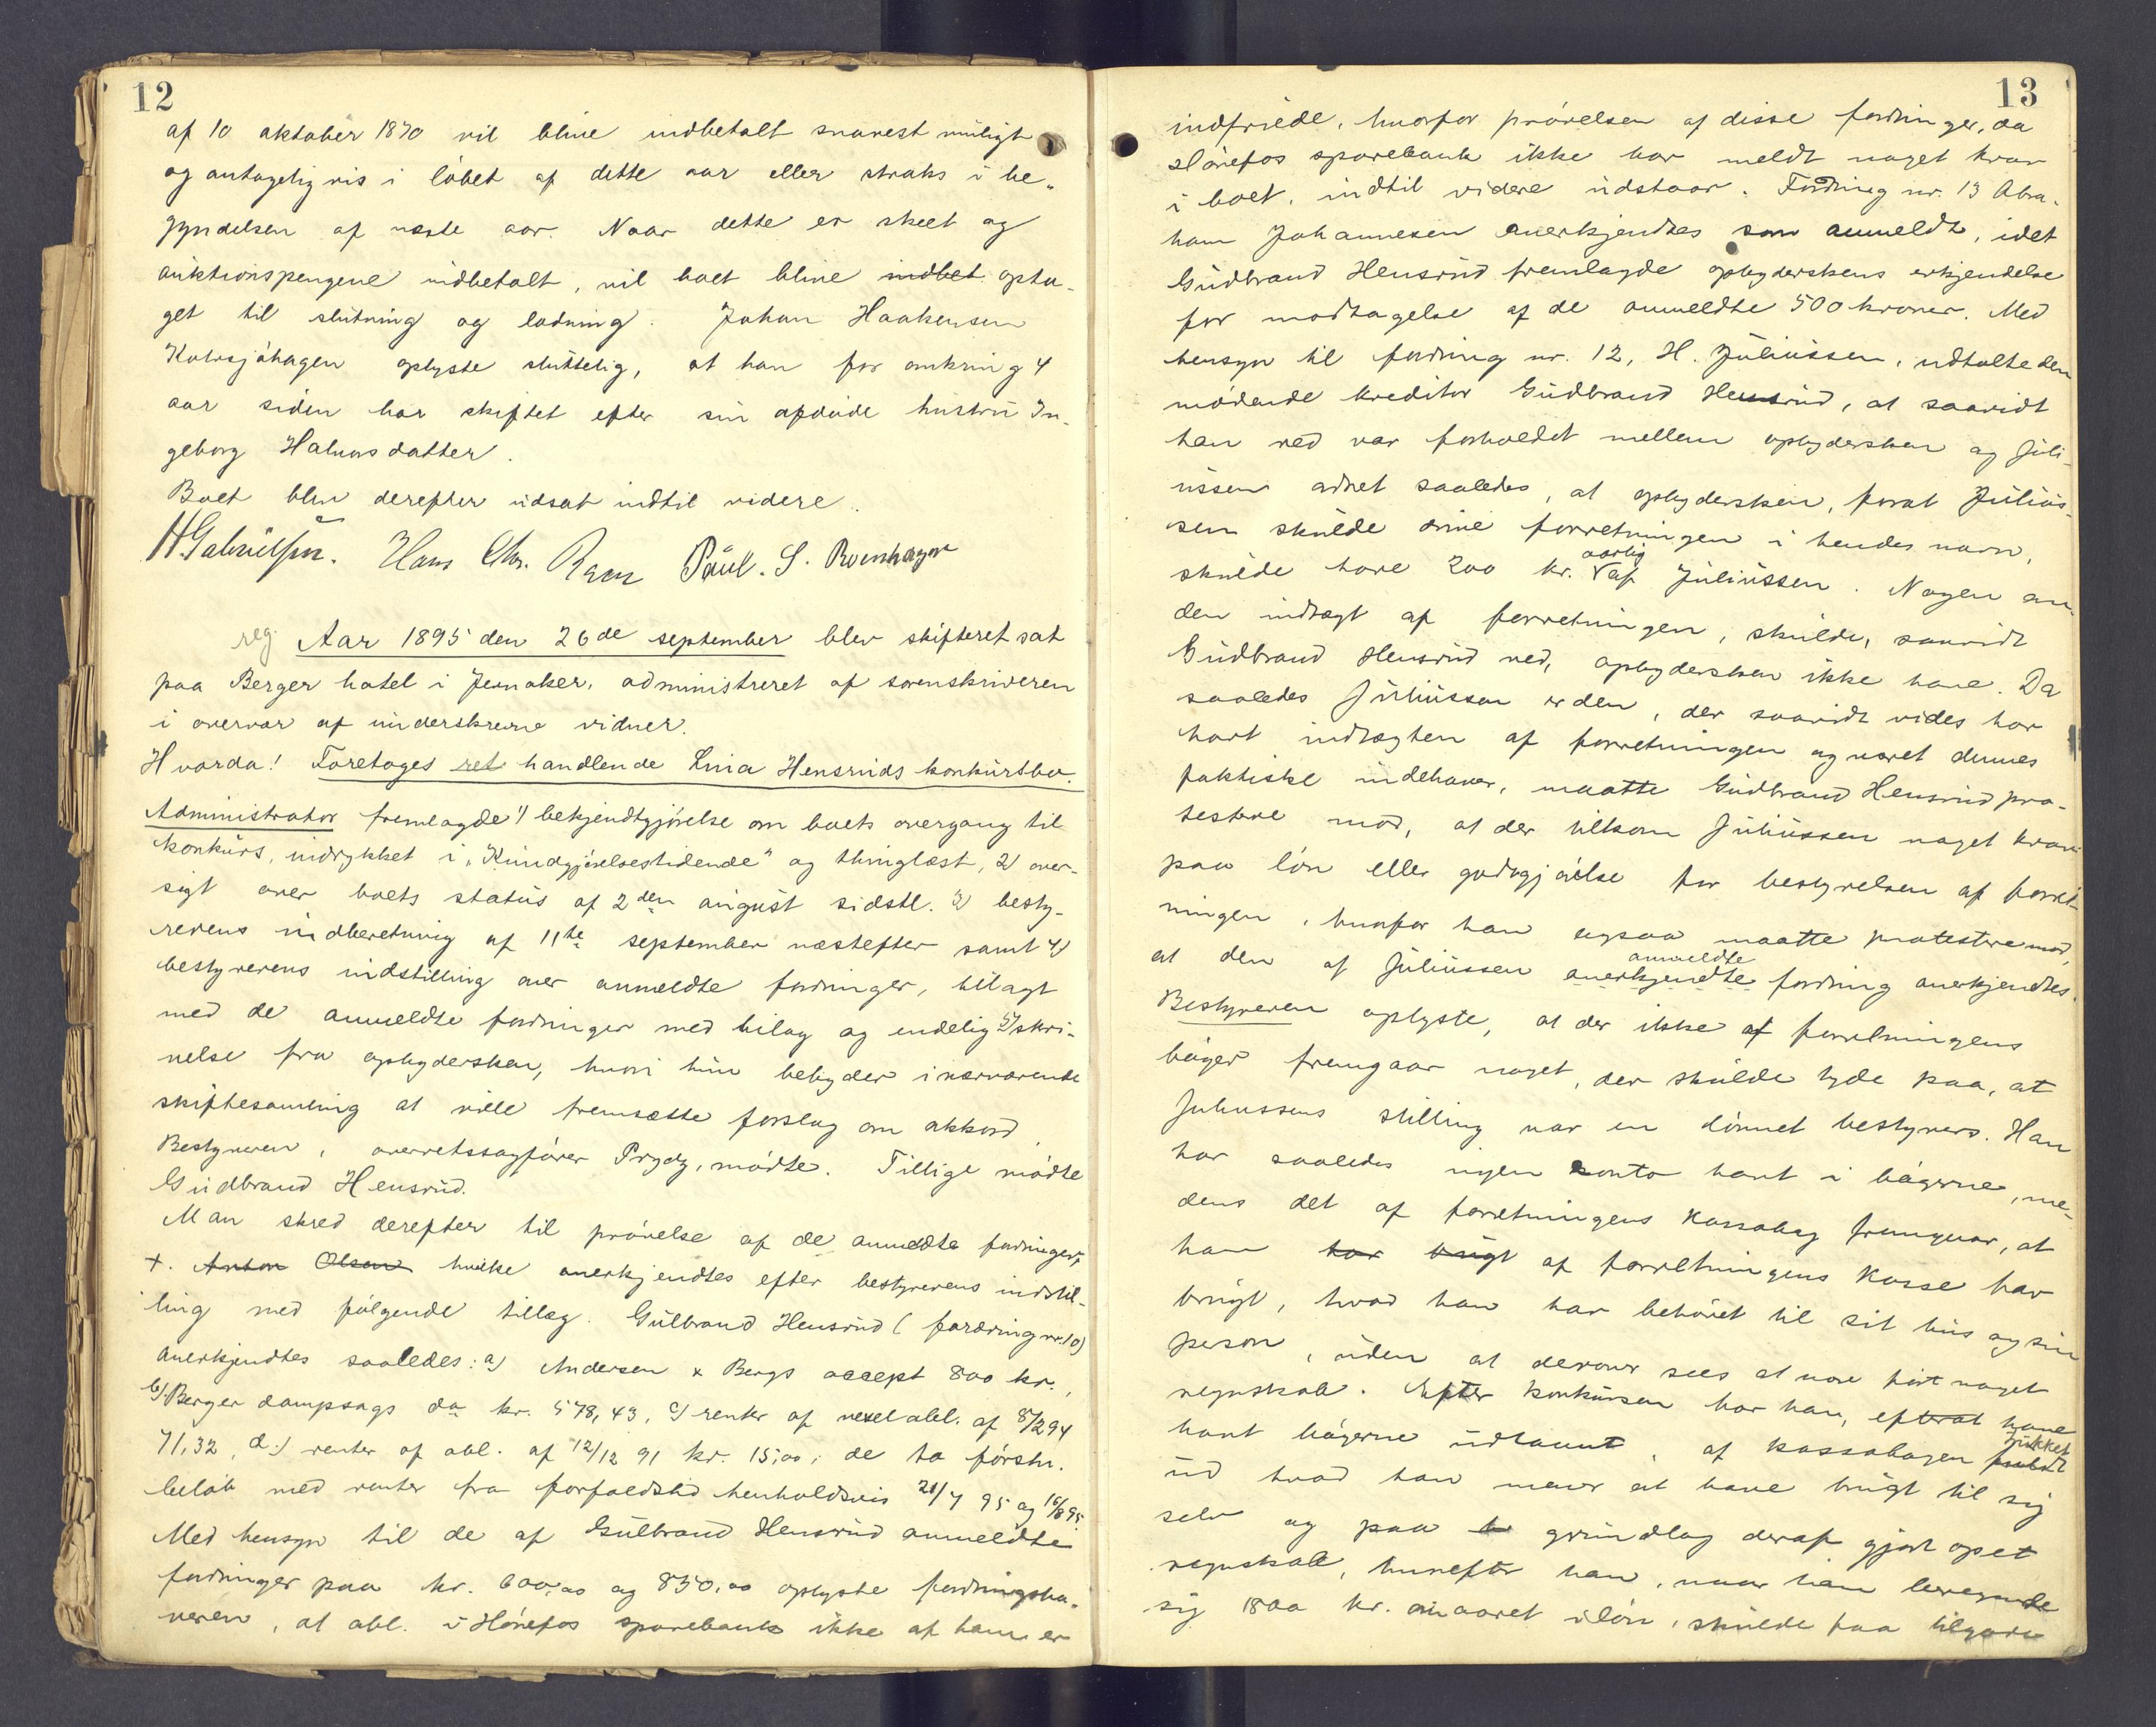 12
af 10 oktober 1890 vil blive indbetalt snarest muligt
og antagelig vis i løbet af dette aar eller straks i be-
gyndelsen af næste aar. Naar dette er skeet og
auktionspengene indbetalt, vil boet blive indbet. opta-
get til slutning og lodning. Johan Haakensen
oplyste sluttelig, at han for omkring 4
aar siden har skiftet efter sin afdøde hustru In-
geborg Halvorsdatter.
Boet blev derefter udsat indtil videre.
H Gabrielsen. Hans Chr. Paul. S. Roenhagen
reg. Aar 1895 den 26de september blev skifteret sat
paa Berger hotel i Jevnaker, administreret af sorenskriveren
i overvær af underskrevne vidner.
Hvorda! Foretoges ret handlende Lina Hensruds konkursbo.
Administrator fremlagde 1) bekjendtgjørelse om boets overgang til
konkurs, indrykket i "Kundgjørelsestidende" og thinglæst, 2) over-
sigt over boets status af 2den august sidstl. 3) besty-
rerens indberetning af 11te september næstefter samt 4)
bestyrerens indstilling over anmeldte fordringer, bilagt
med de anmeldte fordringer med bilag og endelig 5) skri-
velse fra opbydersken, hvori hun bebyder i nærværende
skiftesamling at ville fremsætte forslag om akkord.
Bestyreren, overretssagfører Prydz, mødte. Tillige mødte
Gudbrand Hensrud.
Man skred derefter til prøvelse af de anmeldte fordringer,
+. Anton Olsen hvilke anerkjendtes efter bestyrerens indstil-
ling med følgende tillæg. Gulbrand Hensrud (fordring nr. 10)
anerkjendtes saaledes: a) Andersen & Bergs accept 800 kr.,
b). Berger dampsags do kr. 578,43, c) renter af vexelobl. af 8/2 94
71,32, d.) renter af obl. af 12/12 91 kr. 15,00; de to førstn.
beløb med renter fra forfaldstid henholdsvis 21/7 95 og 16/8 95.
Med hensyn til de af Gulbrand Hensrud anmeldte
fordringer paa kr. 600,00 og 850,00 oplyste fordringsha-
veren, at obl. i Hønefos sparebank ikke af ham er
13
indfriede, hvorfor prøvelsen af disse fordringer, da
Hønefos sparebank ikke har meldt noget krav
i boet, indtil videre udstaar. Fordring nr. 13 Abra-
ham Johannesen anerkjendtes som anmeldt, idet
Gudbrand Hensrud fremlagde opbyderskens erkjendelse
for modtagelse af de anmeldte 500 kroner. Med
hensyn til fordring nr. 12, H. Juliussen, udtalte den
mødende kreditor Gudbrand Hensrud, at saavidt
han ved var forholdet mellem opbydersken og Juli-
ussen ordnet saaledes, at opbydersken, forat Julius-
sen skulde drive forretningen i hendes navn,
skulde have 200 kr. aarlig af Juliussen. Nogen an-
den indtægt af forretningen, skulde, saavidt
Gudbrand Hensrud ved, opbydersken ikke have. Da
saaledes Juliussen er den, der saavidt vides har
havt indtægten af forretningen og været dennes
faktiske indehaver, maatte Gudbrand Hensrud pro-
testere mod, at der tilkom Juliussen noget krav
paa løn eller godtgjørelse for bestyrelsen af forret-
ningen, hvorfor han ogsaa maatte protestere mod,
at den af Juliussen anmeldte anerkjendte fordring anerkjendtes.
Bestyreren oplyste, at der ikke af forretningens
bøger fremgaar noget, der skulde tyde paa, at
Juliussens stilling var en lønnet bestyrers. Han
har saaledes ingen konto havt i bøgerne, me-
dens det af forretningens kassabog fremgaar, at
han har brugt af forretningens kasse har
brugt, hvad han har behøvet til sit hus og sin
person, uden at derover sees at være ført noget
regnskab. Efter konkursen har han, efterat have
havt bøgerne udlaant, af kassabogen fuldt trukket
ud hvad han mener at have brugt til sig
selv og paa grundlag deraf gjort opet
regnskab, hvorefter han, naar han beregnede
sig 1800 kr. om aaret i løn, skulde faa tilgode